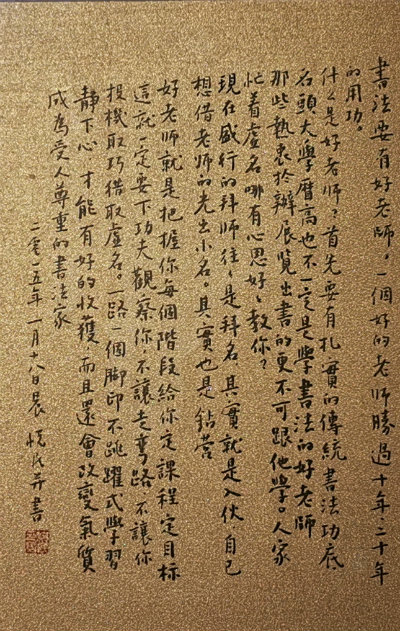 書法要有好老师。一個好的老师勝過十年、二十年
的用功。
什么是好老师？首先要有札實的傳統書法功底、
名頭大學曆高也不一定是學書法的好老师
那些熱衷於辦展覽出書的更不可跟他學。人家
忙着虚名哪有心思好〻教你？
現在盛行的拜师往〻是拜名其實就是入伙自己
想借老师的光出小名。其實也是鉆营
好老师就是把握你每個階段給你定課程定目标
這就一定要下功夫觀察你，不讓走弯路不讓你
投機取巧借取虚名。一路一個脚印不跳躍式学習
静下心才能有好的收獲而且還會改變氣質
成為受人尊重的書法家
二零一五年一月十八日晨 书書